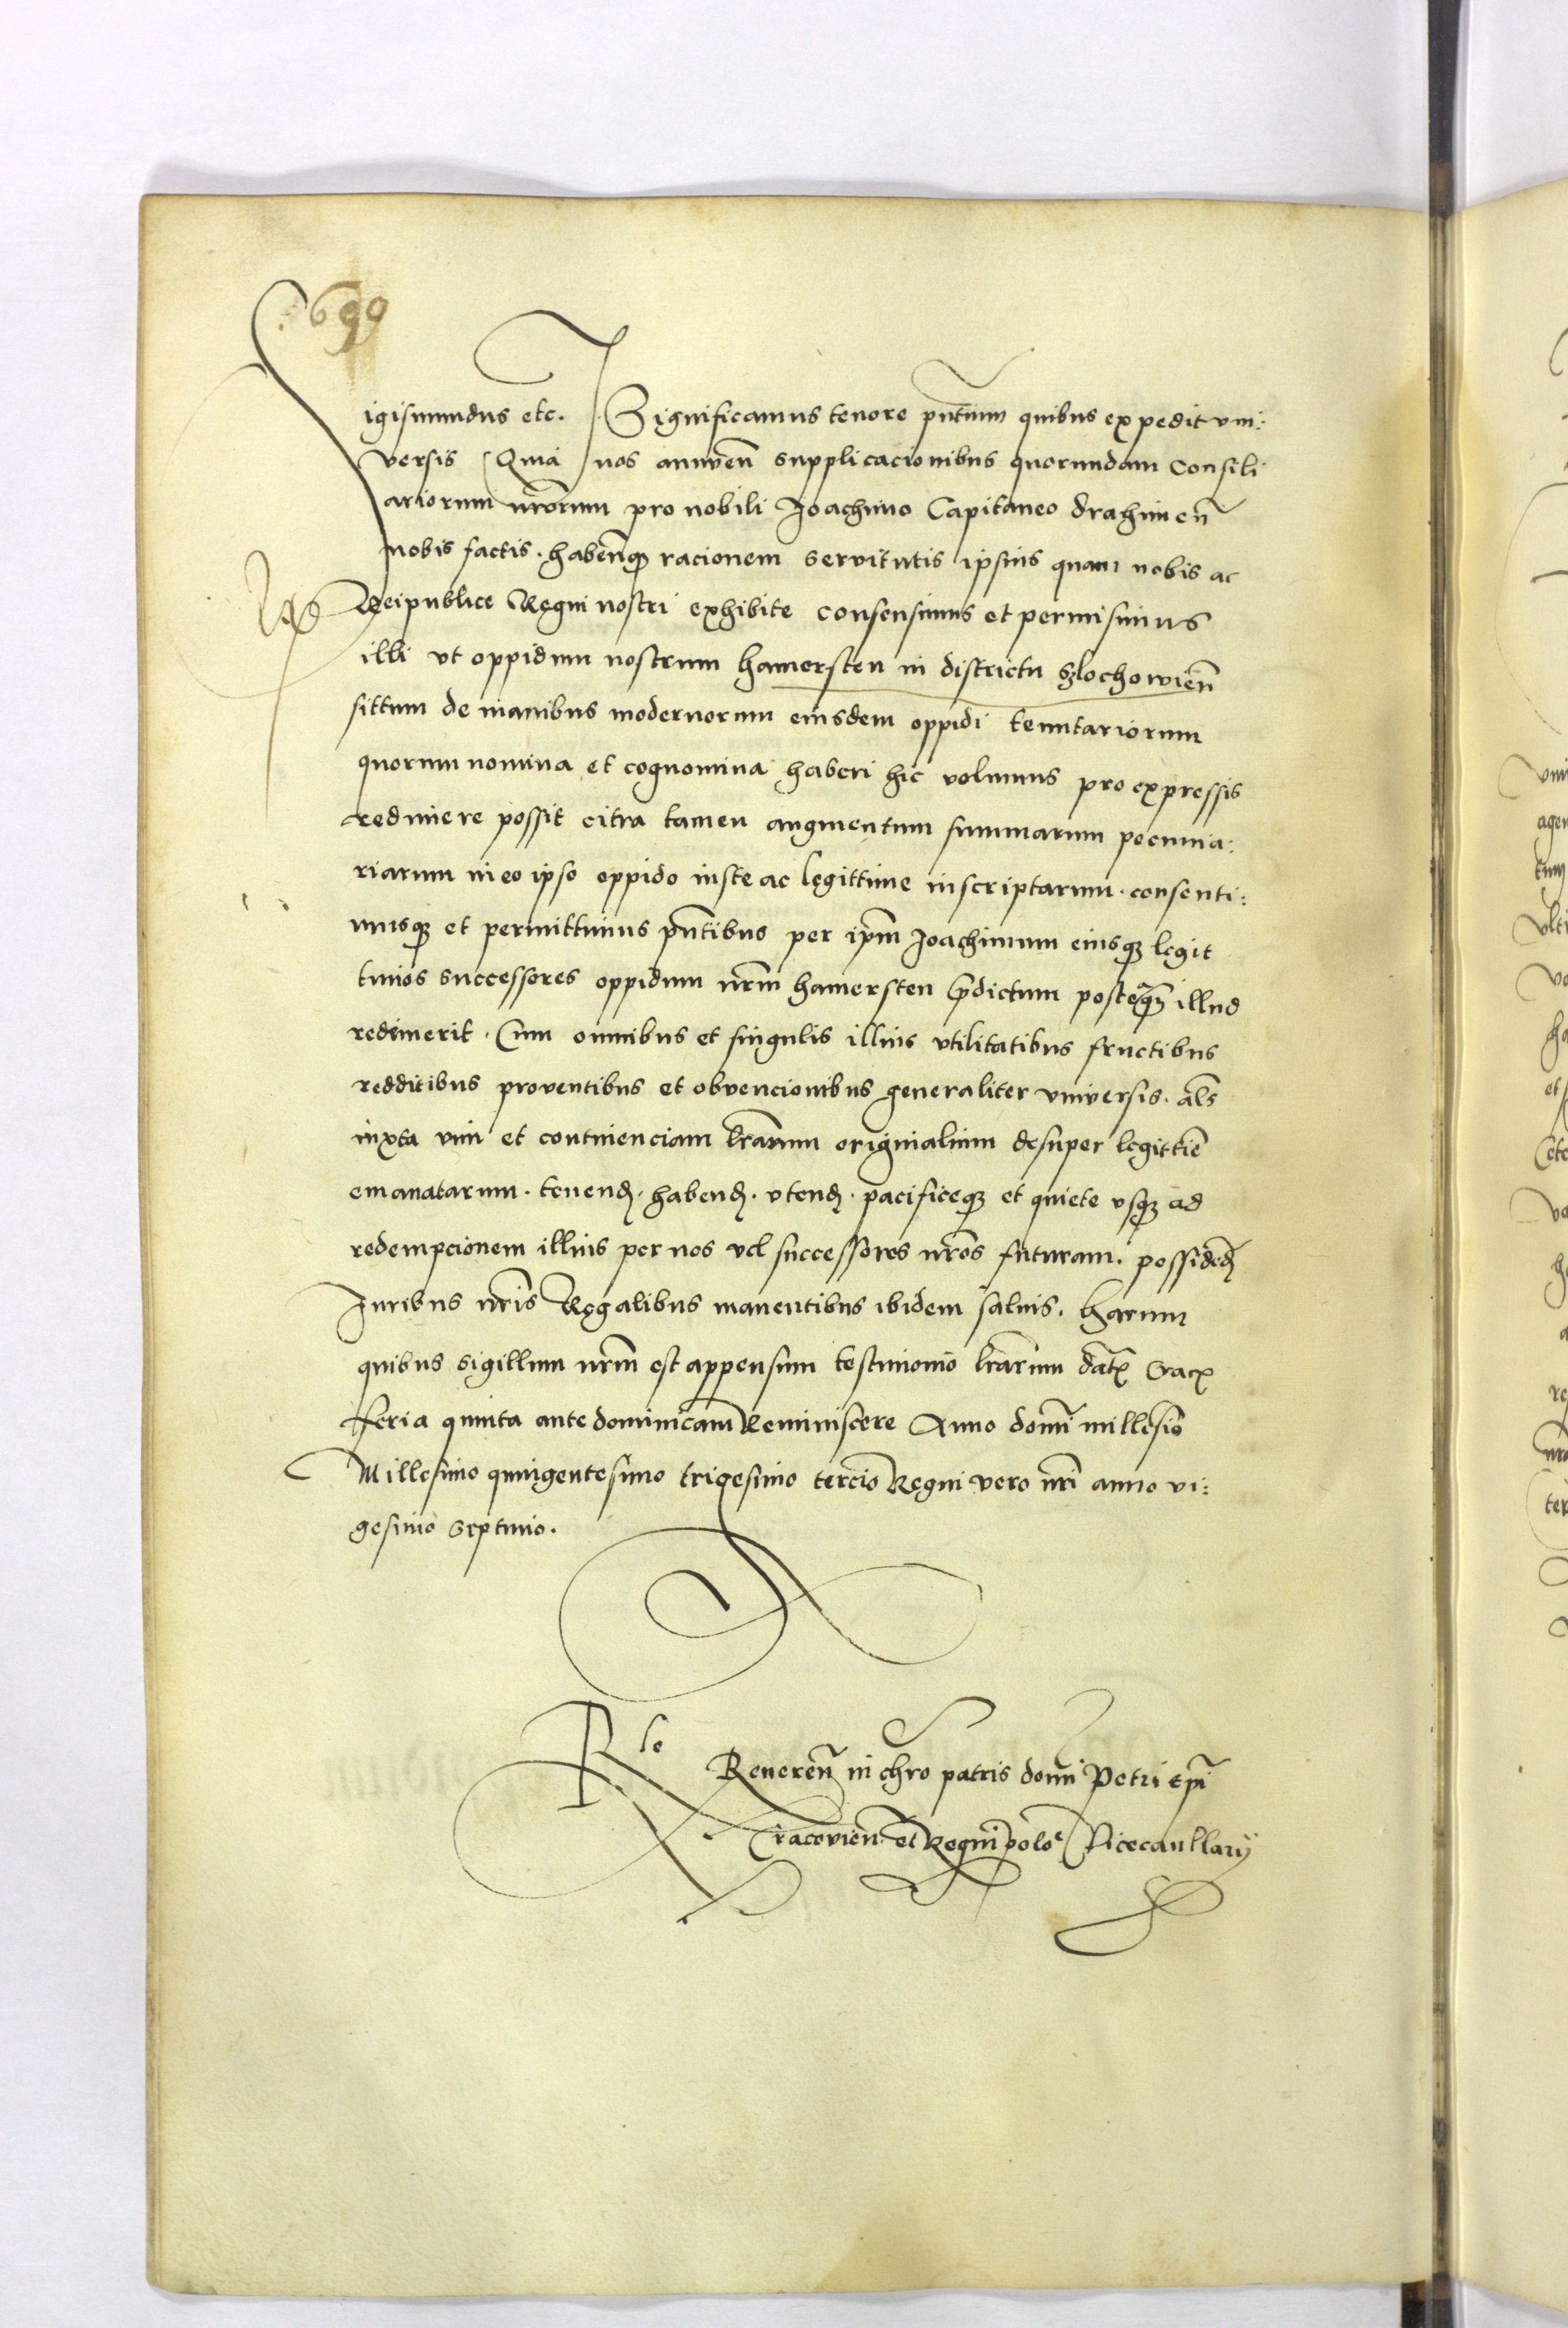 690
Sigismundus etc. Significamus tenore pñtium quibus expedit vni:
versis Quia nos annueñ supplicacionibus quorundam Consili
ariorum nrorum pro nobili Joachimo Capitaneo drahimeñ
nobis factis. habeñq racionem servitutis ipsius quam nobis ac
Reipublice Regni nostri exhibite consensimus et permisimus
illi vt oppidum nostrum hamersten in districtu Szlochowieñ
sittum de manibus modernorum eiusdem oppidi tenutariorum
quorum nomina et cognomina haberi hic volumus pro expressis
redimere possit citra tamen augmentum summarum pecunia:
riarum in eo ipso oppido iuste ac legittime inscriptarum. consenti:
musq et permittimus pñtibus per ipm Joachimum eiusq legit
timos successores oppidum nrm hamersten p̃dictum posteaq̃ illud
redimerit. Cum omnibus et singulis illius vtilitatibus fructibus
redditibus proventibus et obvencionibus generaliter vniversis. als
iuxta vim et continenciam lrarum originalium desuper legittie
emanatarum. tenend. habend. vtend. pacificeq et quiete vsq ad
redempcionem illius per nos vel successores nros futuram. possided
Juribus nris Regalibus manentibus ibidem saluis. harum
quibus sigillum nrm est appensum testimonio lrarum dat Crac
feria quinta ante dominicam Reminiscere Anno domi millesio
Millesimo quingentesimo trigesimo tercio Regni vero nri anno vi:
gesimo septimo.
Rle Reuereñ in chro patris domi Petri epi
Cracovieñ et Regni polo Vicecancllarij